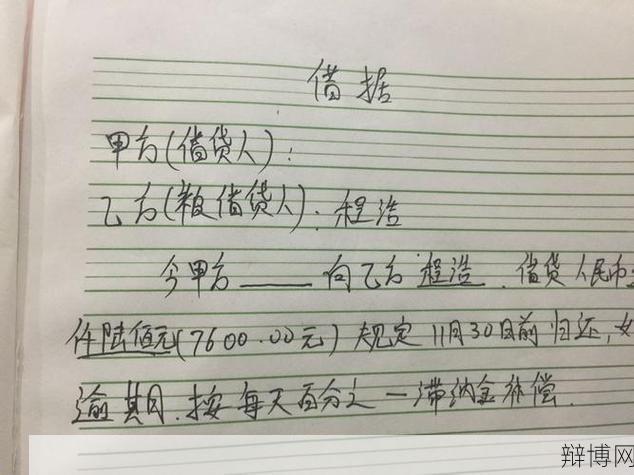 借据
甲方(借贷人):
乙方(被借贷人):程浩
今甲方____向乙方 程浩 . 借贷人民币
仟陆佰元(7600.00元)规定11月30日前归还,
逾期.按每天百分之一滞纳金补偿.
辩博网